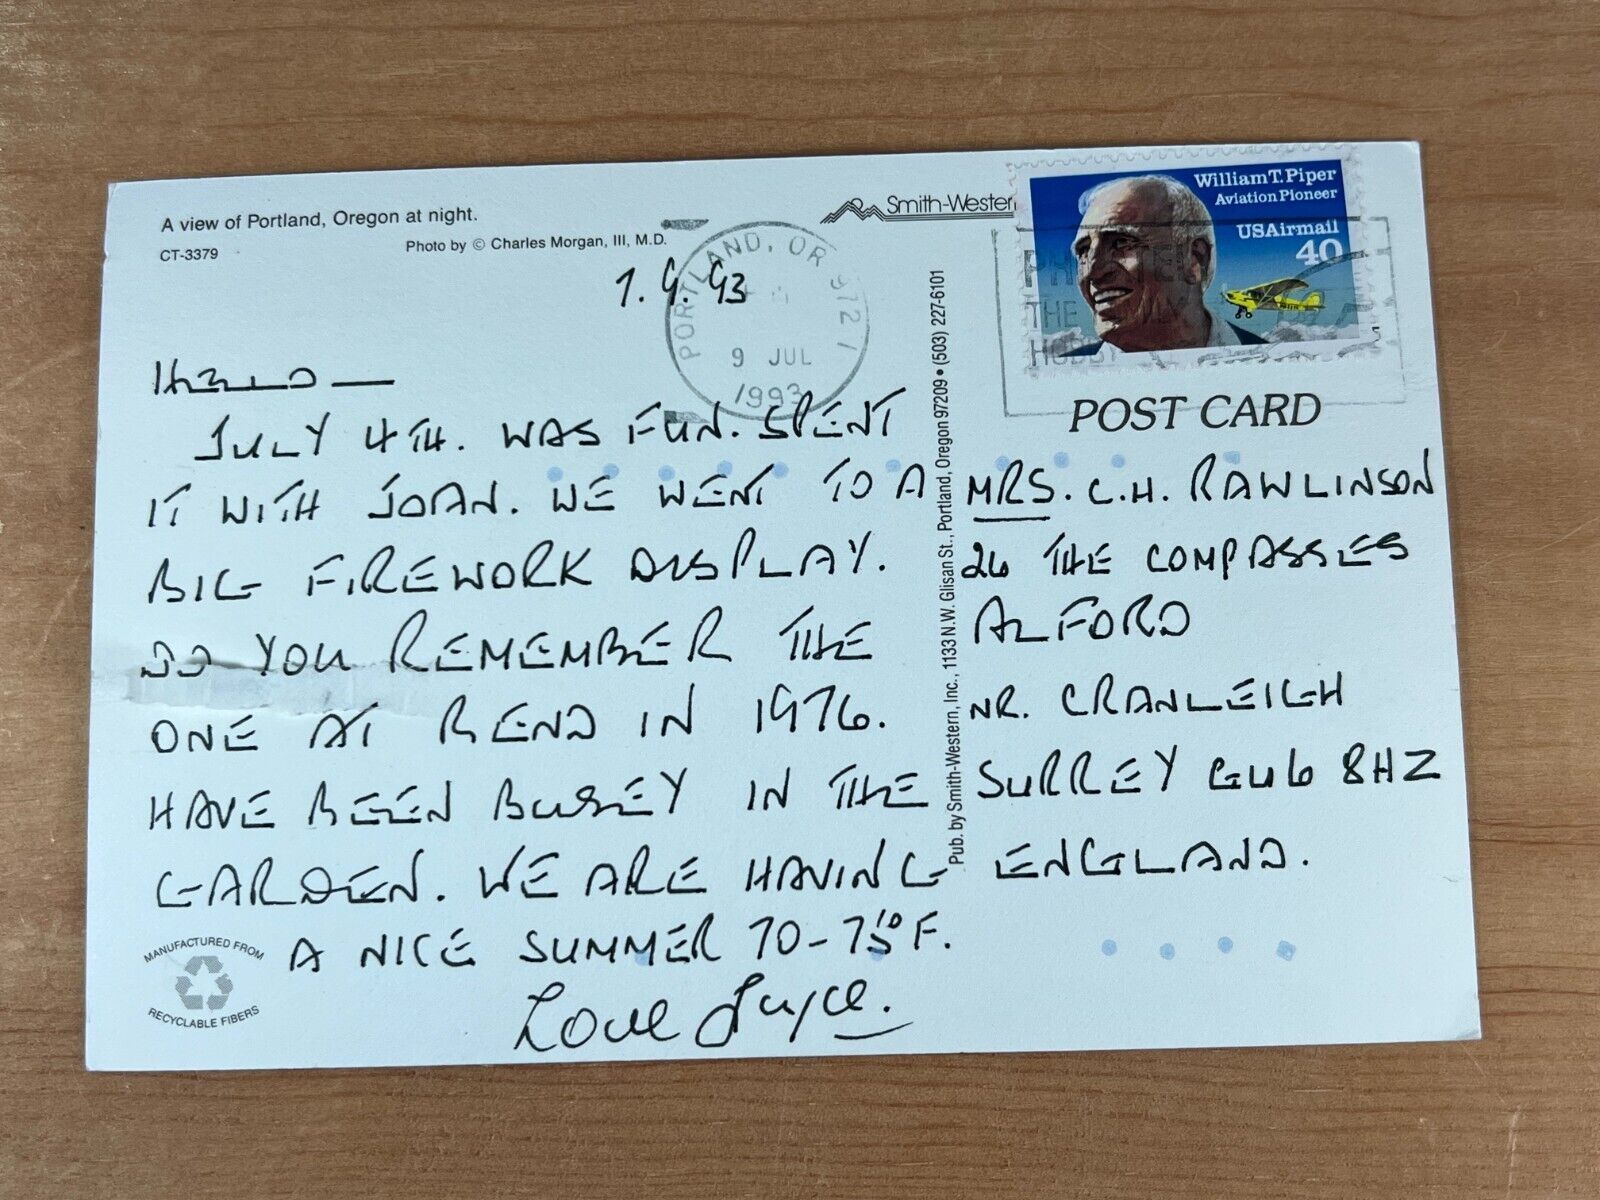 A view of Portland, Oregon at night.
CT-3379
Photo by © Charles Morgan, III, M.D.
Smith-Western
PORTLAND, OR 9721
9 JUL
1993
William T. Piper
Aviation Pioneer
USAirmail
40
THE
HOBBY
POST CARD
HELLO —
JULY 4TH. WAS FUN. SPENT
IT WITH JOAN. WE WENT TO A
BIG FIREWORK DISPLAY.
DO YOU REMEMBER THE
ONE AT BEND IN 1976.
HAVE BEEN BUSEY IN THE
GARDEN. WE ARE HAVING
A NICE SUMMER 70-75°F.
Love Joyce.
Pub. by Smith-Western, Inc., 1133 N.W. Glisan St., Portland, Oregon 97209 • (503) 227-6101
MRS. C.H. RAWLINSON
26 THE COMPASSES
ALFORD
NR. CRANLEIGH
SURREY GU6 8HZ
ENGLAND.
MANUFACTURED FROM
RECYCLABLE FIBERS